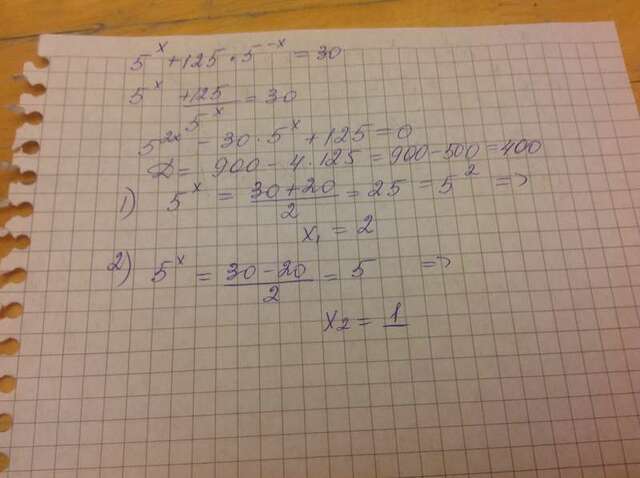 5^x + 125 · 5^{-x} = 30
5^x + 125/5^x = 30
5^{2x} - 30 · 5^x + 125 = 0
D = 900 - 4 · 125 = 900 - 500 = 400
1) 5^x = (30 + 20)/2 = 25 = 5^2 =>
x₁ = 2
2) 5^x = (30 - 20)/2 = 5 =>
x₂ = 1